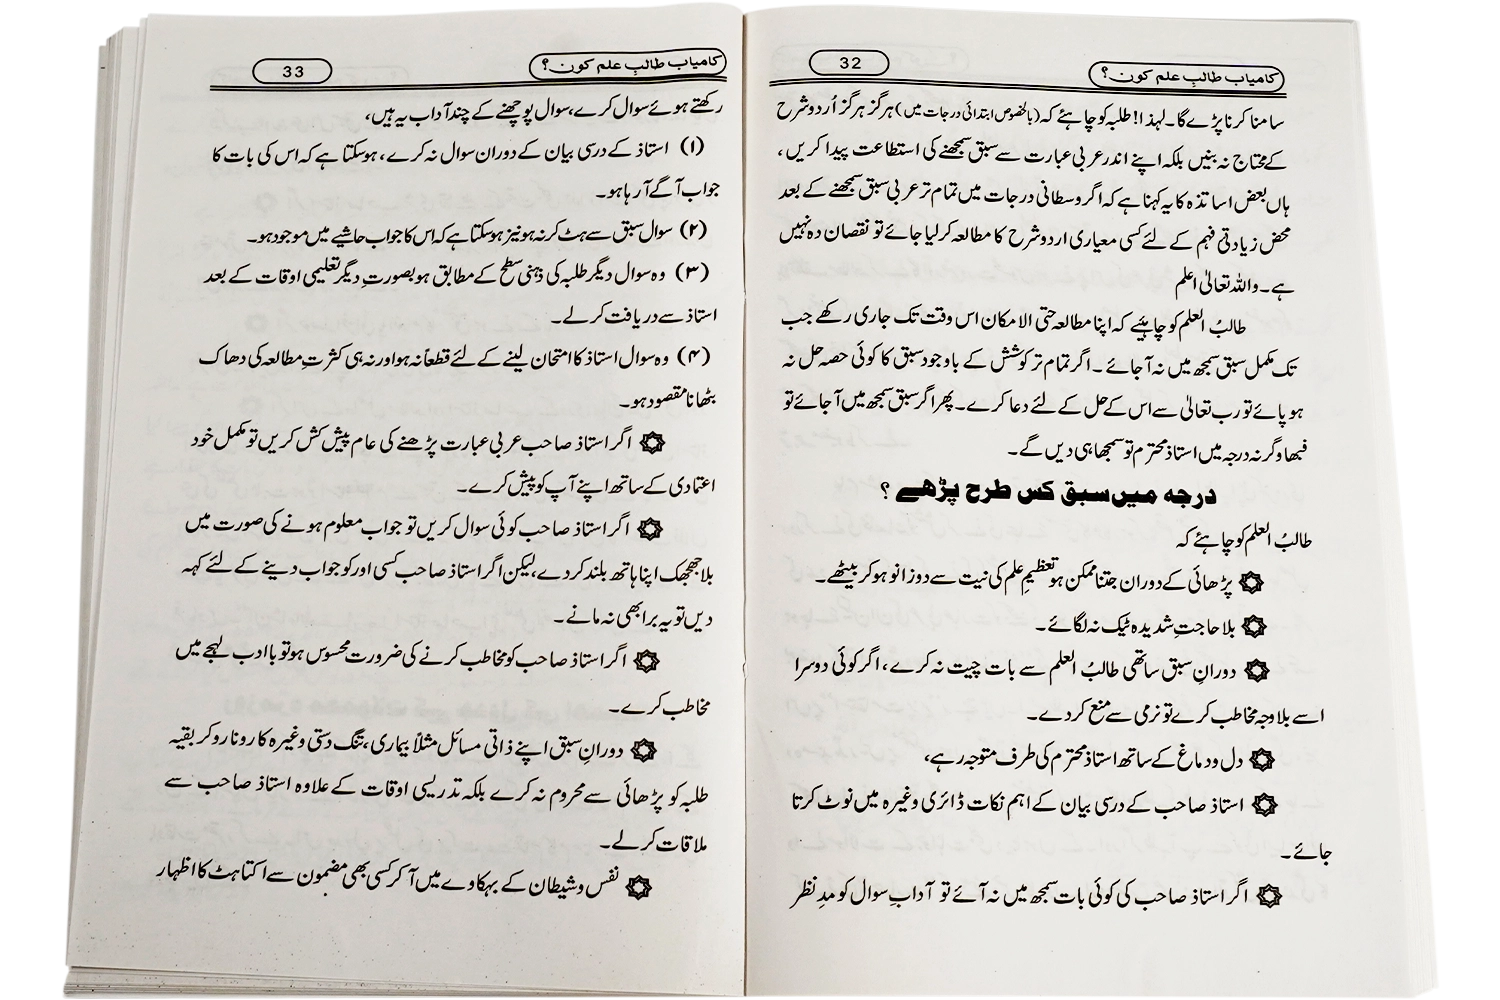 32
کامیاب طالبِ علم کون؟
سامنا کرنا پڑے گا۔ لہذا! طلبہ کو چاہئے کہ (بالخصوص ابتدائی درجات میں) ہرگز ہرگز اُردو شرح
کے محتاج نہ بنیں بلکہ اپنے اندر عربی عبارت سے سبق سمجھنے کی استطاعت پیدا کریں،
ہاں بعض اساتذہ کا یہ کہنا ہے کہ اگر وسطانی درجات میں تمام تر عربی سبق سمجھنے کے بعد
محض زیادتی فہم کے لئے کسی معیاری اردو شرح کا مطالعہ کر لیا جائے تو نقصان دہ نہیں
ہے۔ واللہ تعالیٰ اعلم
طالبُ العلم کو چاہیٔے کہ اپنا مطالعہ حتی الامکان اس وقت تک جاری رکھے جب
تک مکمل سبق سمجھ میں نہ آ جائے۔ اگر تمام تر کوشش کے باوجود سبق کا کوئی حصہ حل نہ
ہو پائے تو رب تعالیٰ سے اس کے حل کے لئے دعا کرے۔ پھر اگر سبق سمجھ میں آ جائے تو
فبھا وگرنہ درجہ میں استاذ محترم تو سمجھا ہی دیں گے۔
درجہ میں سبق کس طرح پڑھے؟
طالبُ العلم کو چاہئے کہ
پڑھائی کے دوران جتنا ممکن ہو تعظیمِ علم کی نیت سے دوزانو ہو کر بیٹھے۔
بلا حاجتِ شدیدہ ٹیک نہ لگائے۔
دورانِ سبق ساتھی طالبُ العلم سے بات چیت نہ کرے، اگر کوئی دوسرا
اسے بلا وجہ مخاطب کرے تو نرمی سے منع کر دے۔
دل و دماغ کے ساتھ استاذ محترم کی طرف متوجہ رہے،
استاذ صاحب کے درسی بیان کے اہم نکات ڈائری وغیرہ میں نوٹ کرتا
جائے۔
اگر استاذ صاحب کی کوئی بات سمجھ میں نہ آئے تو آدابِ سوال کو مدِ نظر
33
کامیاب طالبِ علم کون؟
رکھتے ہوئے سوال کرے، سوال پوچھنے کے چند آداب یہ ہیں،
(۱) استاذ کے درسی بیان کے دوران سوال نہ کرے، ہوسکتا ہے کہ اس کی بات کا
جواب آگے آ رہا ہو۔
(۲) سوال سبق سے ہٹ کر نہ ہو نیز ہوسکتا ہے کہ اس کا جواب حاشیے میں موجود ہو۔
(۳) وہ سوال دیگر طلبہ کی ذہنی سطح کے مطابق ہو بصورتِ دیگر تعلیمی اوقات کے بعد
استاذ سے دریافت کر لے۔
(۴) وہ سوال استاذ کا امتحان لینے کے لئے قطعاً نہ ہو اور نہ ہی کثرتِ مطالعہ کی دھاک
بٹھانا مقصود ہو۔
اگر استاذ صاحب عربی عبارت پڑھنے کی عام پیش کش کریں تو مکمل خود
اعتمادی کے ساتھ اپنے آپ کو پیش کرے۔
اگر استاذ صاحب کوئی سوال کریں تو جواب معلوم ہونے کی صورت میں
بلا جھجھک اپنا ہاتھ بلند کر دے، لیکن اگر استاذ صاحب کسی اور کو جواب دینے کے لئے کہہ
دیں تو یہ برا بھی نہ مانے۔
اگر استاذ صاحب کو مخاطب کرنے کی ضرورت محسوس ہو تو با ادب لہجے میں
مخاطب کرے۔
دورانِ سبق اپنے ذاتی مسائل مثلاً بیماری، تنگ دستی وغیرہ کا رونا رو کر بقیہ
طلبہ کو پڑھائی سے محروم نہ کرے بلکہ تدریسی اوقات کے علاوہ استاذ صاحب سے
ملاقات کر لے۔
نفس و شیطان کے بہکاوے میں آ کر کسی بھی مضمون سے اکتاہٹ کا اظہار